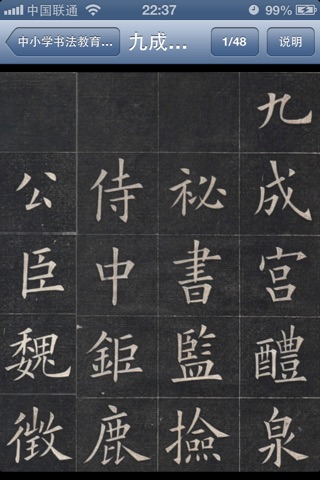 中国联通 22:37 99%
中小学书法教育... 九成... 1/48 说明
九成宮醴泉
祕書監撿
侍中鉅鹿
公臣魏徵